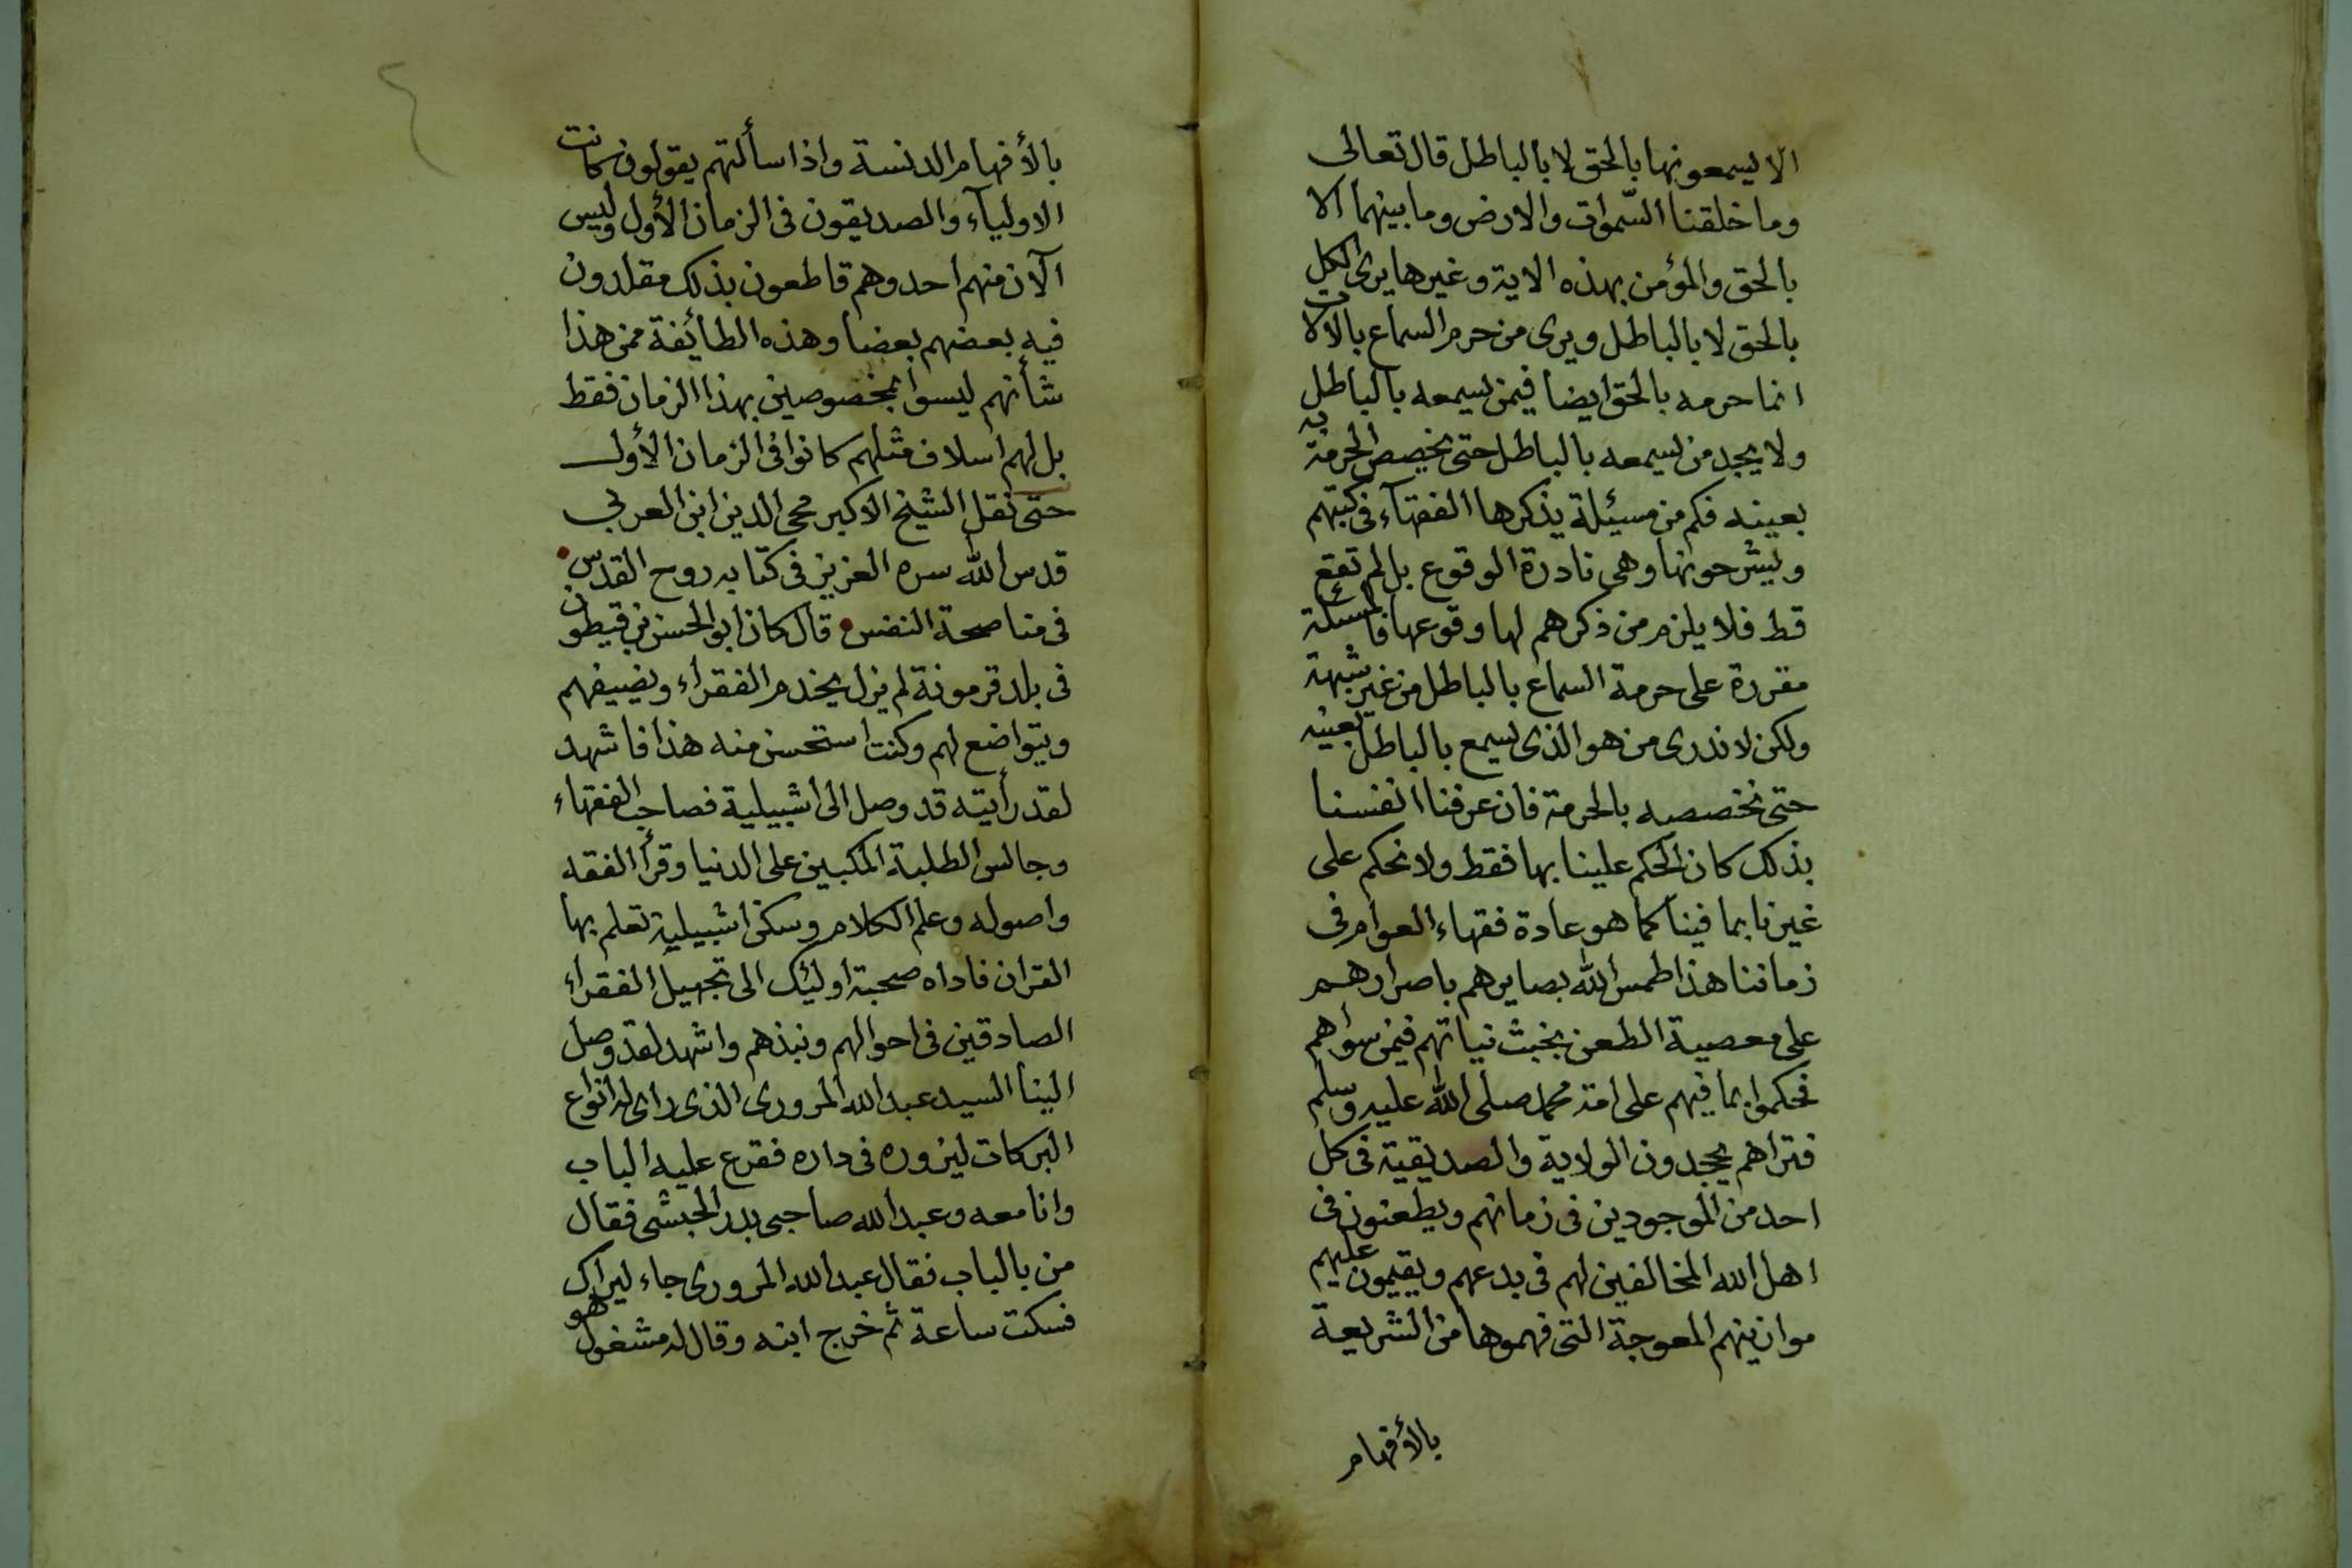 الا يسمعونها بالحق لا بالباطل قال تعالى
وما خلقنا السّموات والارض وما بينهما الا
بالحق والمؤمن بهذه الاية وغيرها يرى الكل
بالحق لا بالباطل ويرى من حرم السماع بالآلات
انما حرمه بالحق ايضا فيمن يسمعه بالباطل
ولا يجد من يسمعه بالباطل حتى يخصص الحرمة به
بعينه فكم من مسئلة يذكرها الفقهآء في كتبهم
ويشرحونها وهي نادرة الوقوع بل لم تقع
قط فلا يلزم من ذكرهم لها وقوعها فالمسئلة
مقررة على حرمة السماع بالباطل من غير شبهة
ولكن لا ندرى من هو الذى يسمع بالباطل بعينه
حتى نخصصه بالحرمة فان عرفنا انفسنا
بذلك كان الحكم علينا بها فقط ولا نحكم على
غيرنا بما فينا كما هو عادة فقهاء العوام فى
زماننا هذا طمس الله بصايرهم باصرارهم
على معصية الطعن بخبث نياتهم فيمن سواهم
فحكموا بما فيهم على امة محمد صلى الله عليه وسلم
فتراهم يجحدون الولاية والصديقية فى كل
احد من الموجودين فى زمانهم ويطعنون فى
اهل الله المخالفين لهم فى بدعهم ويقيمون عليهم
موازينهم المعوجة التى فهموها من الشريعة
بالأفهام
بالأفهام الدنسة واذا سألتهم يقولون كانت
الاوليآء والصديقون فى الزمان الأول وليس
الآن منهم احد وهم قاطعون بذلك مقلدون
فيه بعضهم بعضا وهذه الطائفة ممن هذا
شأنهم ليسوا بمخصوصين بهذا الزمان فقط
بل لهم اسلاف مثلهم كانوا فى الزمان الأول
حتى نقل الشيخ الاكبر محى الدين ابن العربي
قدس الله سره العزيز فى كتابه روح القدس
فى مناصحة النفس قال كان ابو الحسن بن قيطون
فى بلد قرمونة لم يزل يخدم الفقراء ويضيفهم
ويتواضع لهم وكنت استحسن منه هذا فاشهد
لقد رأيته قد وصل الى اشبيلية فصاحب الفقهاء
وجالس الطلبة المكبين على الدنيا وقرأ الفقه
واصوله وعلم الكلام وسكن اشبيلية تعلم بها
القران فاداه صحبة اوليئك الى تجهيل الفقراء
الصادقين فى احوالهم ونبذهم واشهد لقد وصل
الينا السيد عبد الله المرورى الذى راى له انواع
البركات ليزوره فى داره فقرع عليه الباب
وانا معه وعبد الله صاحبى بدر الحبشى فقال
من بالباب فقال عبد الله المرورى جاء ليراك
فسكت ساعة ثم خرج ابنه وقال له مشغول هو